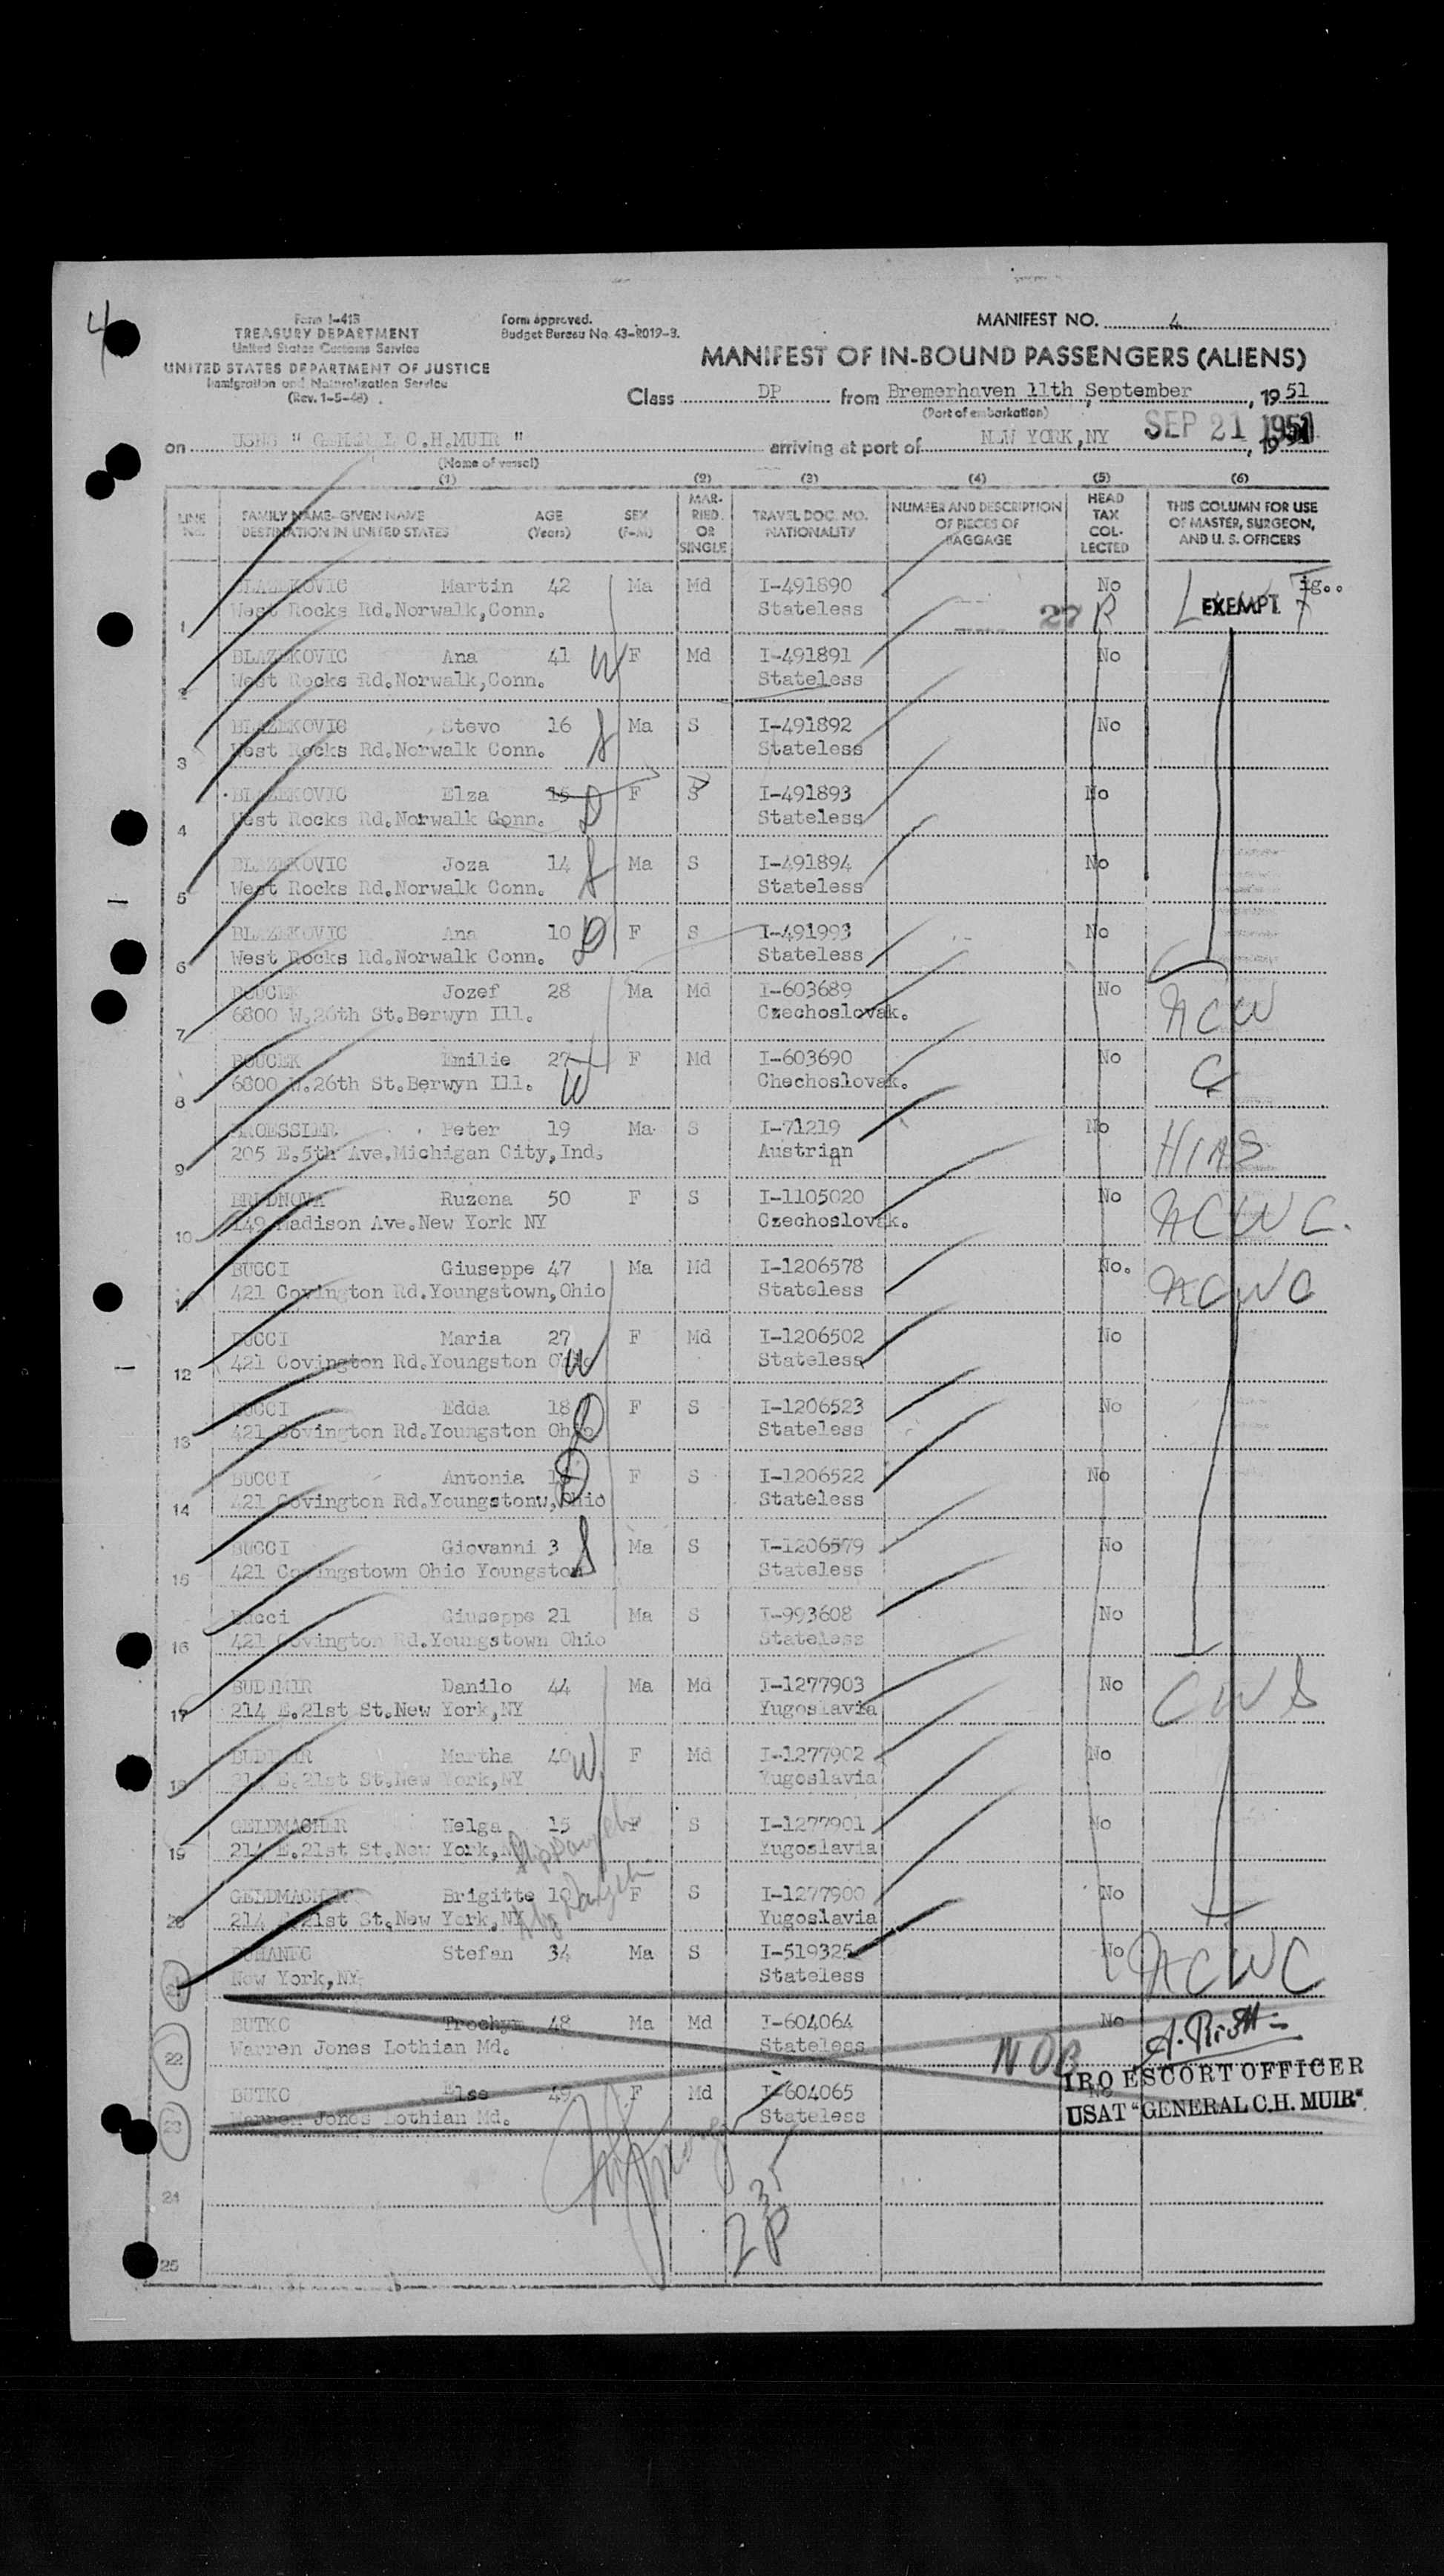 4
Form I-415
TREASURY DEPARTMENT
United States Customs Service
UNITED STATES DEPARTMENT OF JUSTICE
Immigration and Naturalization Service
(Rev. 1-5-48)
Form approved.
Budget Bureau No. 43-R019-3.
MANIFEST NO. 4
MANIFEST OF IN-BOUND PASSENGERS (ALIENS)
Class DP from Bremerhaven 11th, September, 1951
(Port of embarkation)
on USNS " GENERAL C.H.MUIR " arriving at port of NEW YORK,NY SEP 21 1951, 19
(Name of vessel)
(1) (2) (3) (4) (5) (6)
LINE No. FAMILY NAME-GIVEN NAME DESTINATION IN UNITED STATES AGE (Years) SEX (F-M) MARRIED OR SINGLE TRAVEL DOC. NO. NATIONALITY NUMBER AND DESCRIPTION OF PIECES OF BAGGAGE HEAD TAX COLLECTED THIS COLUMN FOR USE OF MASTER, SURGEON, AND U. S. OFFICERS
BLAZEKOVIC Martin 42 Ma Md I-491890 No
1 West Rocks Rd.Norwalk,Conn. Stateless 27 R EXEMPT
BLAZEKOVIC Ana 41 W F Md I-491891 No
2 West Rocks Rd.Norwalk,Conn. Stateless
BLAZEKOVIC Stevo 16 S Ma S I-491892 No
3 West Rocks Rd.Norwalk Conn. Stateless
BLAZEKOVIC Elza 15 D F S I-491893 No
4 West Rocks Rd.Norwalk Conn. Stateless
BLAZEKOVIC Joza 14 S Ma S I-491894 No
5 West Rocks Rd.Norwalk Conn. Stateless
BLAZEKOVIC Ana 10 D F S I-491993 No
6 West Rocks Rd.Norwalk Conn. Stateless
BOUCEK Jozef 28 Ma Md I-603689 No NCW
7 6800 W.26th St.Berwyn Ill. Czechoslovak.
BOUCEK Emilie 27 W F Md I-603690 No C
8 6800 W.26th St.Berwyn Ill. Chechoslovak.
Peter 19 Ma S I-71219 No HIAS
9 205 E.5th Ave.Michigan City,Ind. Austrian
Ruzena 50 F S I-1105020 No NCWC.
10 149 Madison Ave.New York NY Czechoslovak.
BUCCI Giuseppe 47 Ma Md I-1206578 No. NCWC
421 Covington Rd.Youngstown,Ohio Stateless
BUCCI Maria 27 W F Md I-1206502 No
12 421 Covington Rd.Youngston Ohio Stateless
BUCCI Edda 18 D F S I-1206523 No
13 421 Covington Rd.Youngston Ohio Stateless
BUCCI Antonia D F S I-1206522 No
14 421 Covington Rd.Youngstonw,Ohio Stateless
BUCCI Giovanni 3 S Ma S I-1206579 No
15 421 Covingstown Ohio Youngston Stateless
Bucci Giuseppe 21 Ma S I-993608 No
16 421 Covington Rd.Youngstown Ohio Stateless
BUDIMIR Danilo 44 Ma Md I-1277903 No CWS
17 214 E.21st St.New York,NY Yugoslavia
BUDIMIR Martha 40 W F Md I-1277902 No
18 214 E.21st St.New York,NY Yugoslavia
GELDMACHER Helga 15 F S I-1277901 No
19 214 E.21st St.New York, Yugoslavia
GELDMACHER Brigitte 10 F S I-1277900 No
20 214 E.21st St.New York,NY Yugoslavia
Stefan 34 Ma S I-519325 No NCWC
21 New York,NY Stateless
BUTKO Trochym 48 Ma Md I-604064 No
22 Warren Jones Lothian Md. Stateless NOB
BUTKO Else 49 F Md I-604065
23 Warren Jones Lothian Md. Stateless
IRO ESCORT OFFICER
USAT "GENERAL C.H. MUIR"
24
35
2P
25